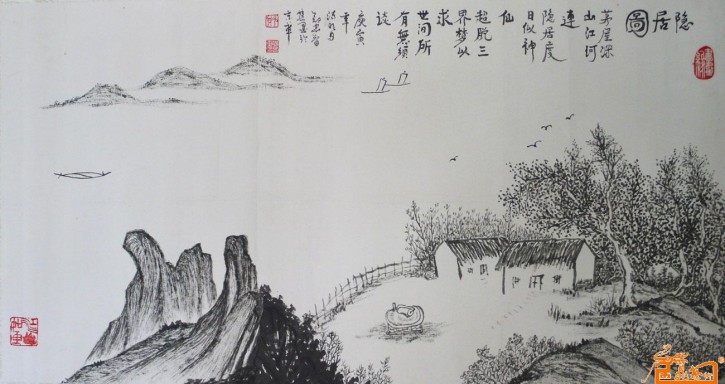 隐居圖
茅屋深
山江河
連
隐居度
日似神
仙
超脱三
界梦以
求
世间所
有無须
谈
庚寅
年
京華